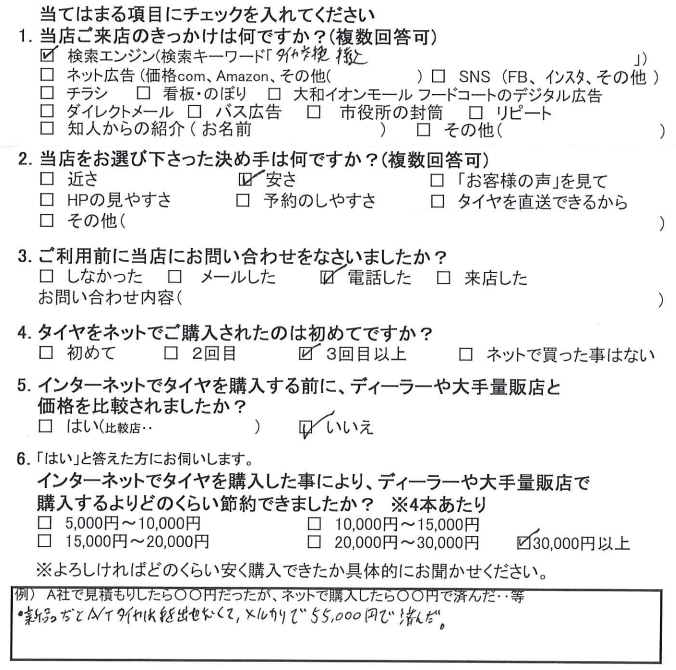 当てはまる項目にチェックを入れてください
1. 当店ご来店のきっかけは何ですか？(複数回答可)
☑ 検索エンジン(検索キーワード「タイヤ交換 持込 」)
□ ネット広告(価格com、Amazon、その他( ) □ SNS (FB、インスタ、その他 )
□ チラシ □ 看板・のぼり □ 大和イオンモール フードコートのデジタル広告
□ ダイレクトメール □ バス広告 □ 市役所の封筒 □ リピート
□ 知人からの紹介 ( お名前 ) □ その他( )
2. 当店をお選び下さった決め手は何ですか？(複数回答可)
□ 近さ ☑ 安さ □ 「お客様の声」を見て
□ HPの見やすさ □ 予約のしやすさ □ タイヤを直送できるから
□ その他( )
3. ご利用前に当店にお問い合わせをなさいましたか？
□ しなかった □ メールした ☑ 電話した □ 来店した
お問い合わせ内容( )
4. タイヤをネットでご購入されたのは初めてですか？
□ 初めて □ 2回目 ☑ 3回目以上 □ ネットで買った事はない
5. インターネットでタイヤを購入する前に、ディーラーや大手量販店と
価格を比較されましたか？
□ はい(比較店‥ ) ☑ いいえ
6. 「はい」と答えた方にお伺いします。
インターネットでタイヤを購入した事により、ディーラーや大手量販店で
購入するよりどのくらい節約できましたか？ ※4本あたり
□ 5,000円～10,000円 □ 10,000円～15,000円
□ 15,000円～20,000円 □ 20,000円～30,000円 ☑30,000円以上
※よろしければどのくらい安く購入できたか具体的にお聞かせください。
例） A社で見積もりしたら〇〇円だったが、ネットで購入したら〇〇円で済んだ‥等
新品だとA/Tタイヤは手が出せなくて、メルカリで55,000円で済んだ。